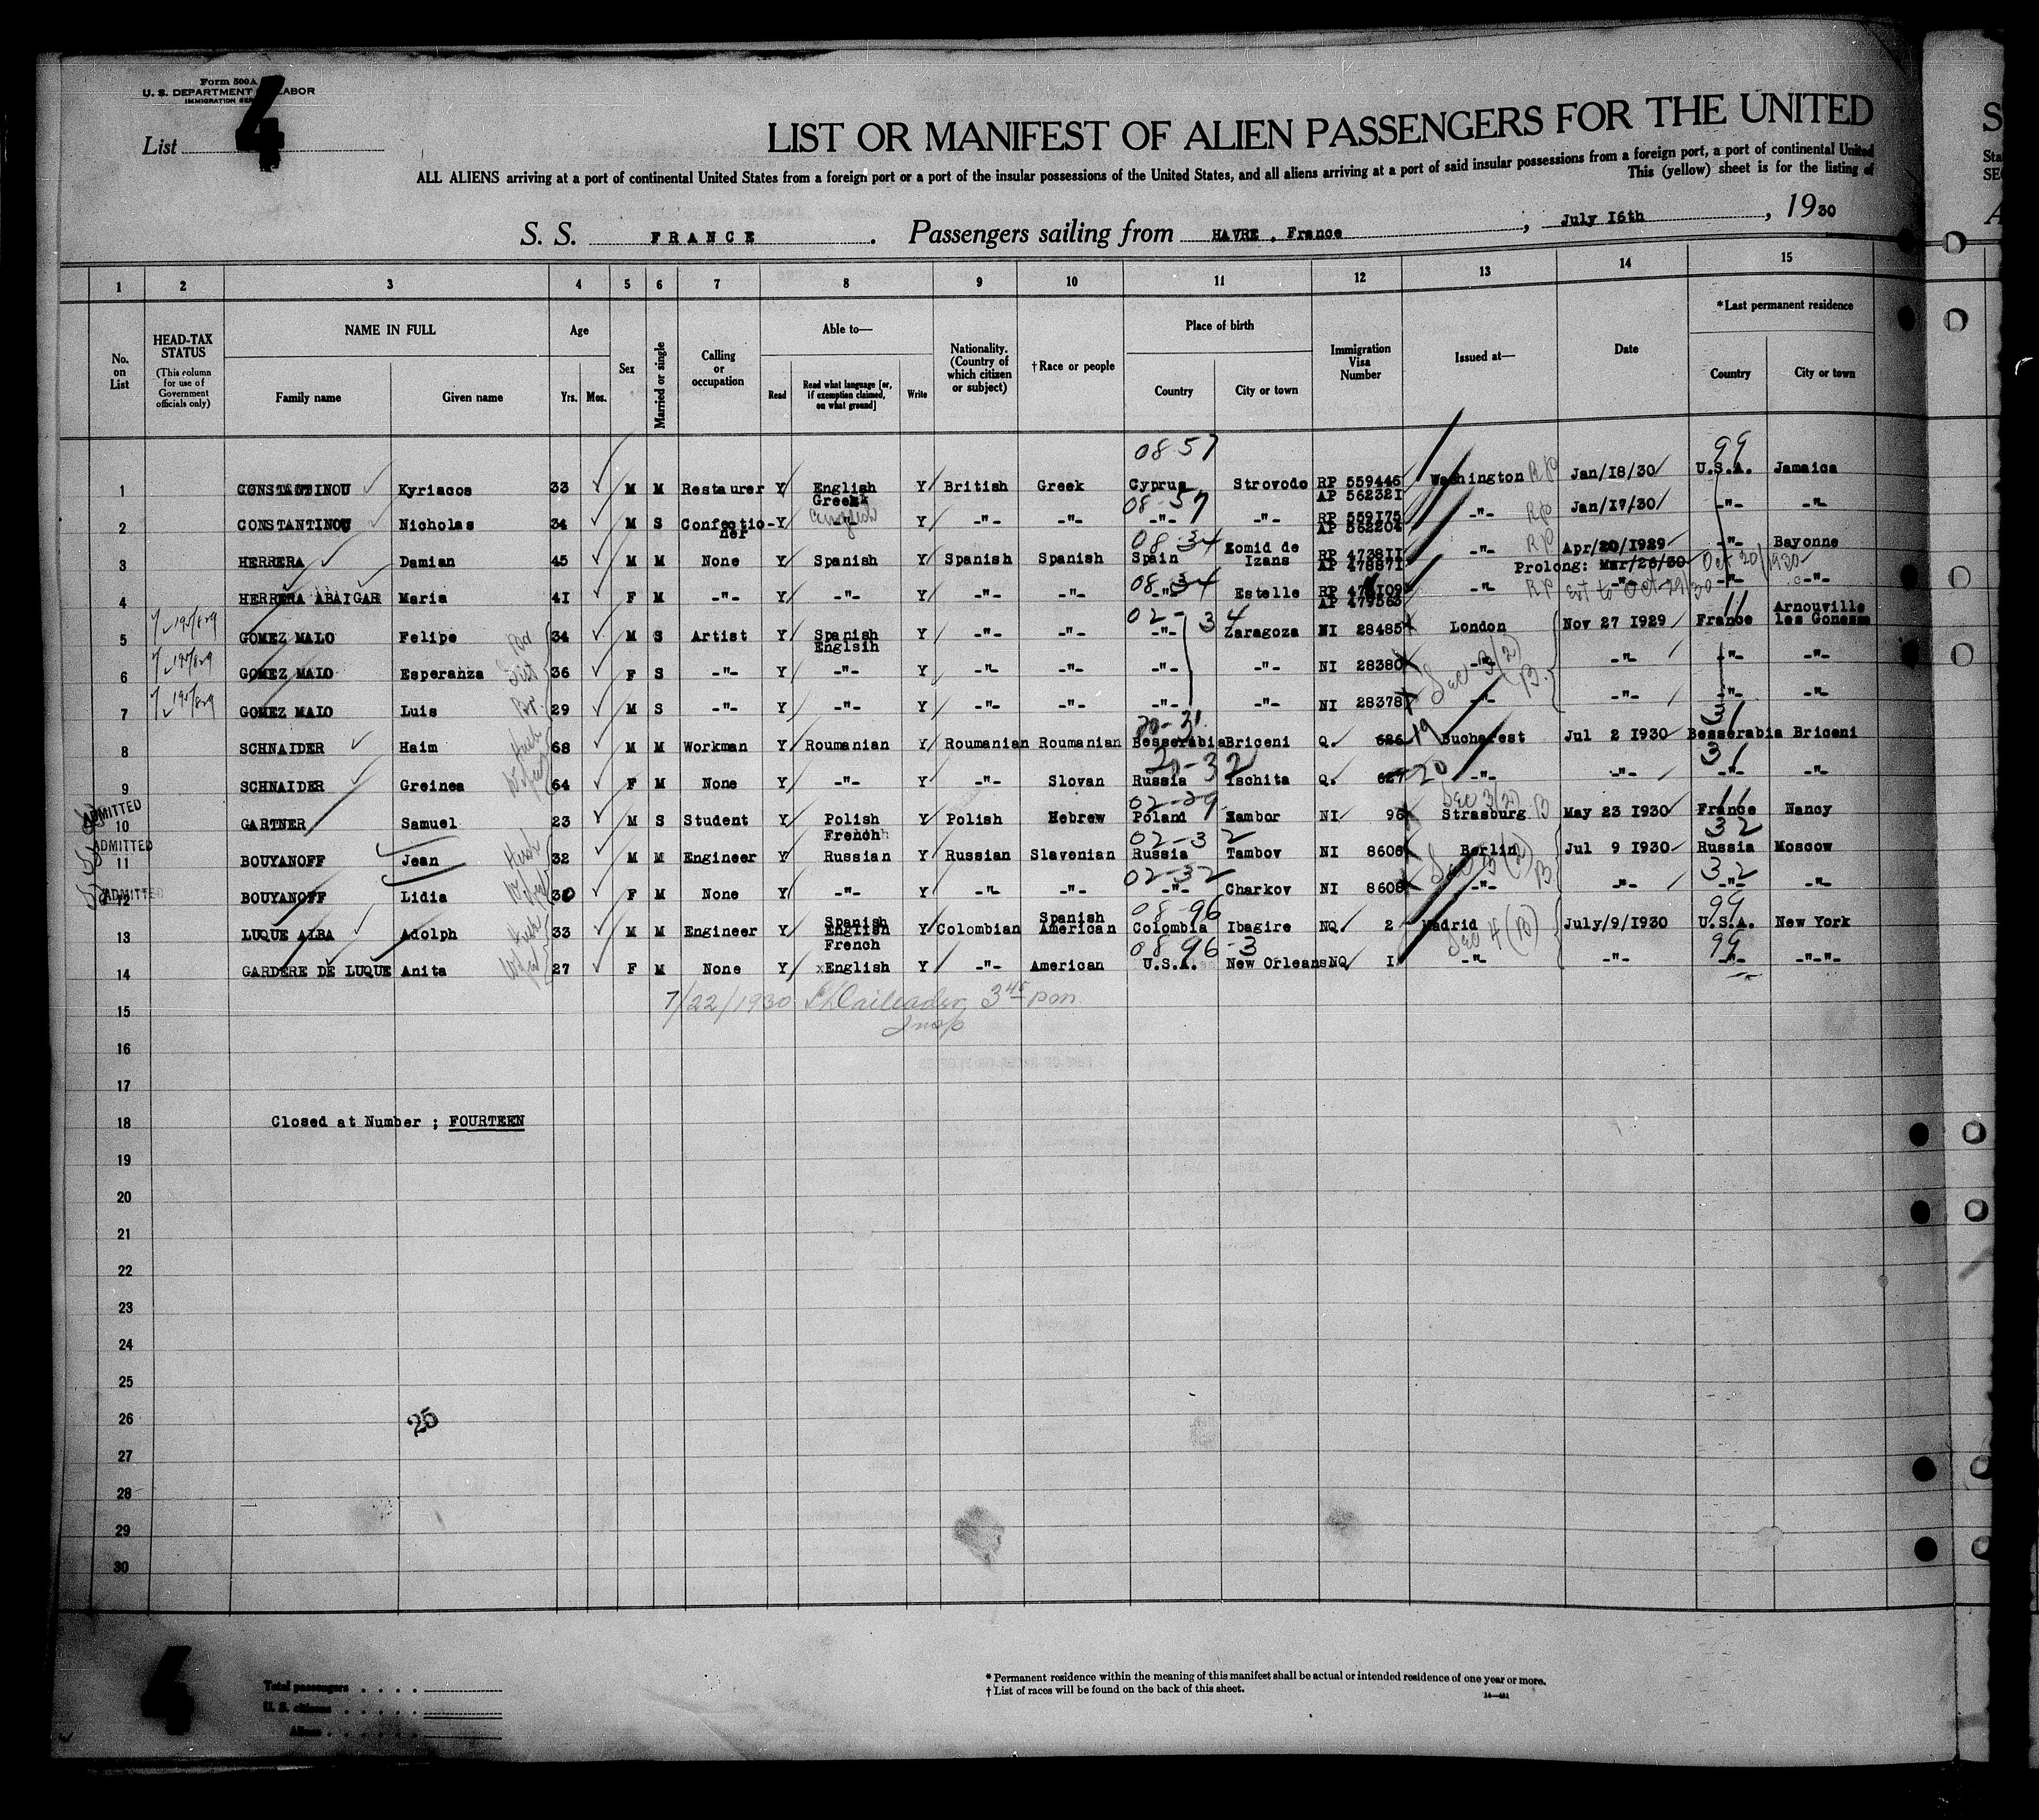 Form 500A
U. S. DEPARTMENT LABOR
IMMIGRATION SER
List 4
LIST OR MANIFEST OF ALIEN PASSENGERS FOR THE UNITED
ALL ALIENS arriving at a port of continental United States from a foreign port or a port of the insular possessions of the United States, and all aliens arriving at a port of said insular possessions from a foreign port, a port of continental United
This (yellow) sheet is for the listing of
S. S. FRANCE. Passengers sailing from HAVRE. France; July 16th, 1930
1 2 3 4 5 6 7 8 9 10 11 12 13 14 15
No. on List
HEAD-TAX STATUS
(This column for use of Government officials only)
NAME IN FULL
Family name
Given name
Age
Yrs. Mos.
Sex
Married or single
Calling or occupation
Able to—
Read
Read what language [or, if exemption claimed, on what ground]
Write
Nationality. (Country of which citizen or subject)
†Race or people
Place of birth
Country
City or town
Immigration Visa Number
Issued at—
Date
*Last permanent residence
Country
City or town
08 57 99
1 CONSTANTINOU Kyriacos 33 M M Restaurer Y English Y British Greek Cyprus Strovodo RP 559446 Washington RP Jan/18/30 U.S.A. Jamaica
Greek 08-57 AP 562321
2 CONSTANTINOU Nicholas 34 M S Confectio- Y -"- English Y -"- -"- -"- -"- RP 559175 -"- RP Jan/17/30 -"- -"-
ner AP 562204
08 34
3 HERRERA Damian 45 M M None Y Spanish Y Spanish Spanish Spain Zomid de Izans RP 473811 -"- RP Apr/20/1929 -"- Bayonne
AP 478871 Prolong: Mar/26/30 Oct 20/1930
08 34
4 HERRERA ABAIGAR Maria 41 F M -"- Y -"- Y -"- -"- -"- Estelle -"- RP Ext to Oct 29/30 -"- -"-
AP 479563
02-34 11 Arnouville
5 GOMEZ MALO Felipe 34 M S Artist Y Spanish Y -"- -"- -"- Zaragoza NI 28485 London Nov 27 1929 France les Gonesse
Englsih
6 GOMEZ MALO Esperanza 36 F S -"- Y -"- Y -"- -"- -"- -"- NI 28380 -"- -"- -"- -"-
Sec 3(2) B.
7 GOMEZ MALO Luis 29 M S -"- Y -"- Y -"- -"- -"- -"- NI 28378 -"- -"- -"- -"-
20-31 31
8 SCHNAIDER Haim 68 M M Workman Y Roumanian Y Roumanian Roumanian Besserabia Briceni Q. 626 19 Bucharest Jul 2 1930 Besserabia Briceni
20-32 31
9 SCHNAIDER Greinea 64 F M None Y -"- Y -"- Slovan Russia Tschita Q. 627 20 -"- -"- -"- -"-
ADMITTED 02-29 Sec 3(2) B 11
10 GARTNER Samuel 23 M S Student Y Polish Y Polish Hebrew Poland Zambor NI 96 Strasburg May 23 1930 France Nancy
ADMITTED French 02-32 32
11 BOUYANOFF Jean 32 M M Engineer Y Russian Y Russian Slavenian Russia Tambov NI 8606 Berlin Jul 9 1930 Russia Moscow
ADMITTED 02-32 Sec 3(2) B 32
12 BOUYANOFF Lidia 30 F M None Y -"- Y -"- -"- -"- Charkov NI 8608 -"- -"- -"- -"-
Spanish Spanish 08-96 99
13 LUQUE ALBA Adolph 33 M M Engineer Y English Y Colombian American Colombia Ibagire NQ 2 Madrid July/9/1930 U.S.A. New York
French 08 96-3 Sec 4 (B) 99
14 GARDERE DE LUQUE Anita 27 F M None Y xEnglish Y -"- American U.S.A. New Orleans NQ 1 -"- -"- -"- -"-"-
7/22/1930 3 45 pm.
Insp
15
16
17
18 Closed at Number ; FOURTEEN
19
20
21
22
23
24
25
26
25
27
28
29
30
4
Total passengers
U. S. citizens
Aliens
* Permanent residence within the meaning of this manifest shall be actual or intended residence of one year or more.
† List of races will be found on the back of this sheet.